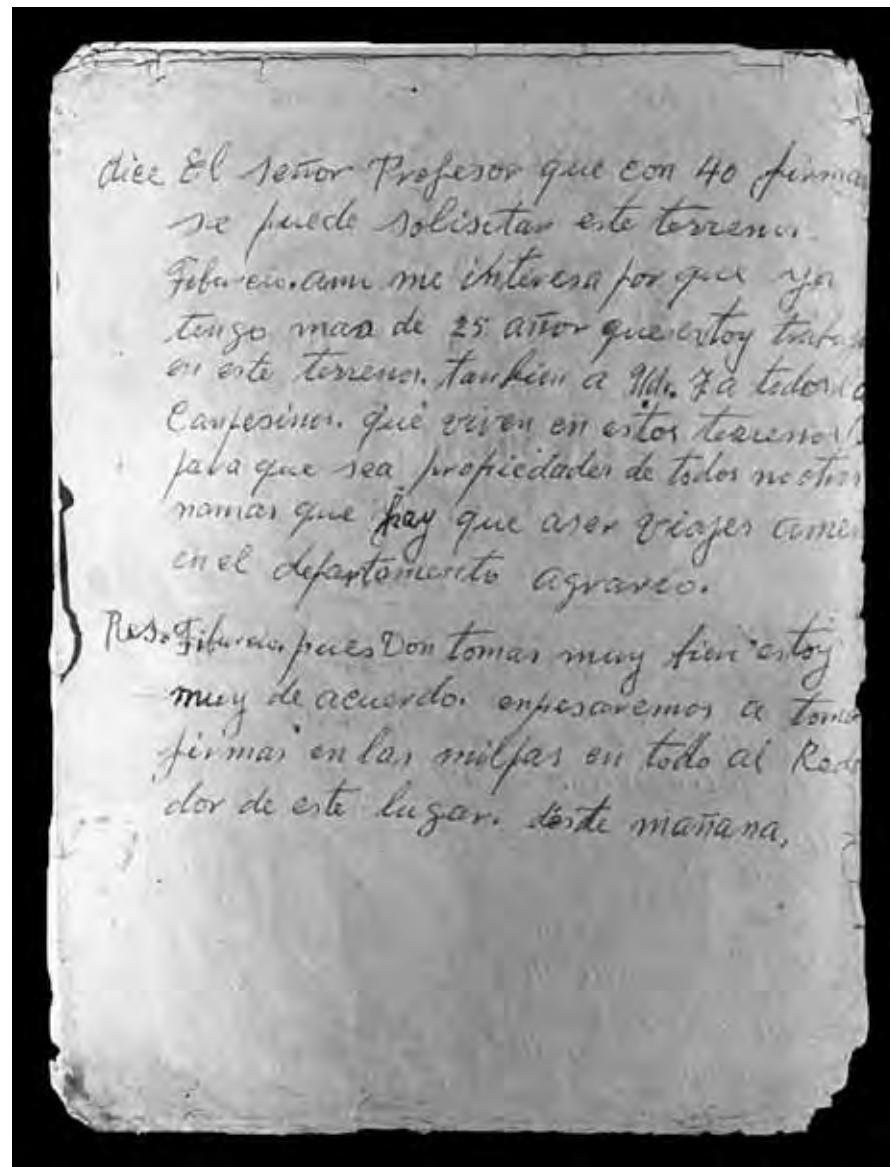 dice El señor Profesor que con 40 firmas
se puede solisitar este terreno.
Tiburcio. ami me interesa por que ya
tengo mas de 25 años que estoy traba
en este terreno. tanbien a Uds. y a todos
Canpesinos. que viven en estos terrenos
para que sea propiedades de todos nosotros
namas que hay que aser viajes
en el departamento agrario.
Res. Tiburcio. pues Don tomas muy bien estoy
muy de acuerdo. enpesaremos a tomar
firmas en las milpas en todo al Rede
dor de este lugar. deste mañana.